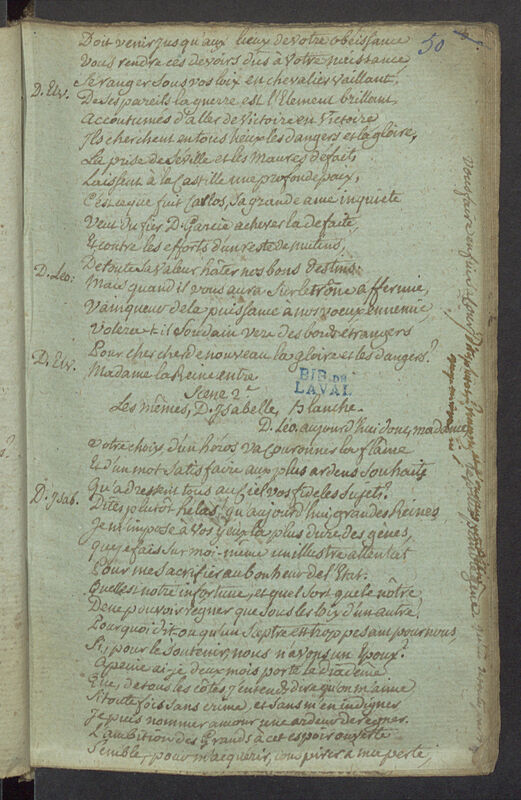 50
Doit venir jusqu'aux lieux de votre obéissance
Vous rendre ces devoirs dus à votre naissance
Se ranger sous vos loix en chevalier vaillant,
D. Elv. De ses pareils la guerre est l'Element brillant,
Accoutumés d'aller de Victoire en Victoire
Ils cherchent en tous lieux les dangers et la gloire,
La prise de Seville et les Maures défaits
Laissent à la Castille une profonde paix,
C'est ce que fuit Carlos, sa grande ame inquiete
Veut du fier D. Garcie achever la defaite,
Et contre les efforts d'un reste de mutins,
De toute sa valeur hâter nos bons destins.
D. Leo: Mais quand il vous aura sur le trône affermie,
Vainqueur de la puissance à nos voeux ennemie,
Volera-t-il soudain vers des bords étrangers
Pour chercher de nouveau la gloire et les dangers?
D. Elv. Madame la Reine entre
Scene 2e
Les mêmes, D. Isabelle, Blanche.
BIB. DE
LAVAL
D. Leo. aujourd'hui donc, madame,
Votre choix d'un héros va couronner la flâme
Et d'un mot satisfaire aux plus ardens souhaits
Qu'adressent tous au Ciel vos fideles sujets?
D. Ysab. Dites plutôt helas! qu'aujourd'hui, grandes Reines
Je m'impose à vos yeux la plus dure des gênes,
que je fais sur moi-même un illustre attentat
Pour me sacrifier au bonheur de l'Etat.
Quelle est notre infortune, et quel sort que le nôtre
De ne pouvoir régner que sous les loix d'un autre,
Pourquoi dit-on qu'un sceptre est trop pesant pour nous
Si, pour le soutenir, nous n'avons un Epoux?
A peine ai-je deux mois porté le diadème
Que, de tous les côtés j'entends dire qu'on m'aime
Si toutefois sans crime, et sans m'en indigner
Je puis nommer amour une ardeur de régner.
L'ambition des Grands à cet espoir ouverte
Semble, pour m'acquérir, conspirer à ma perte,